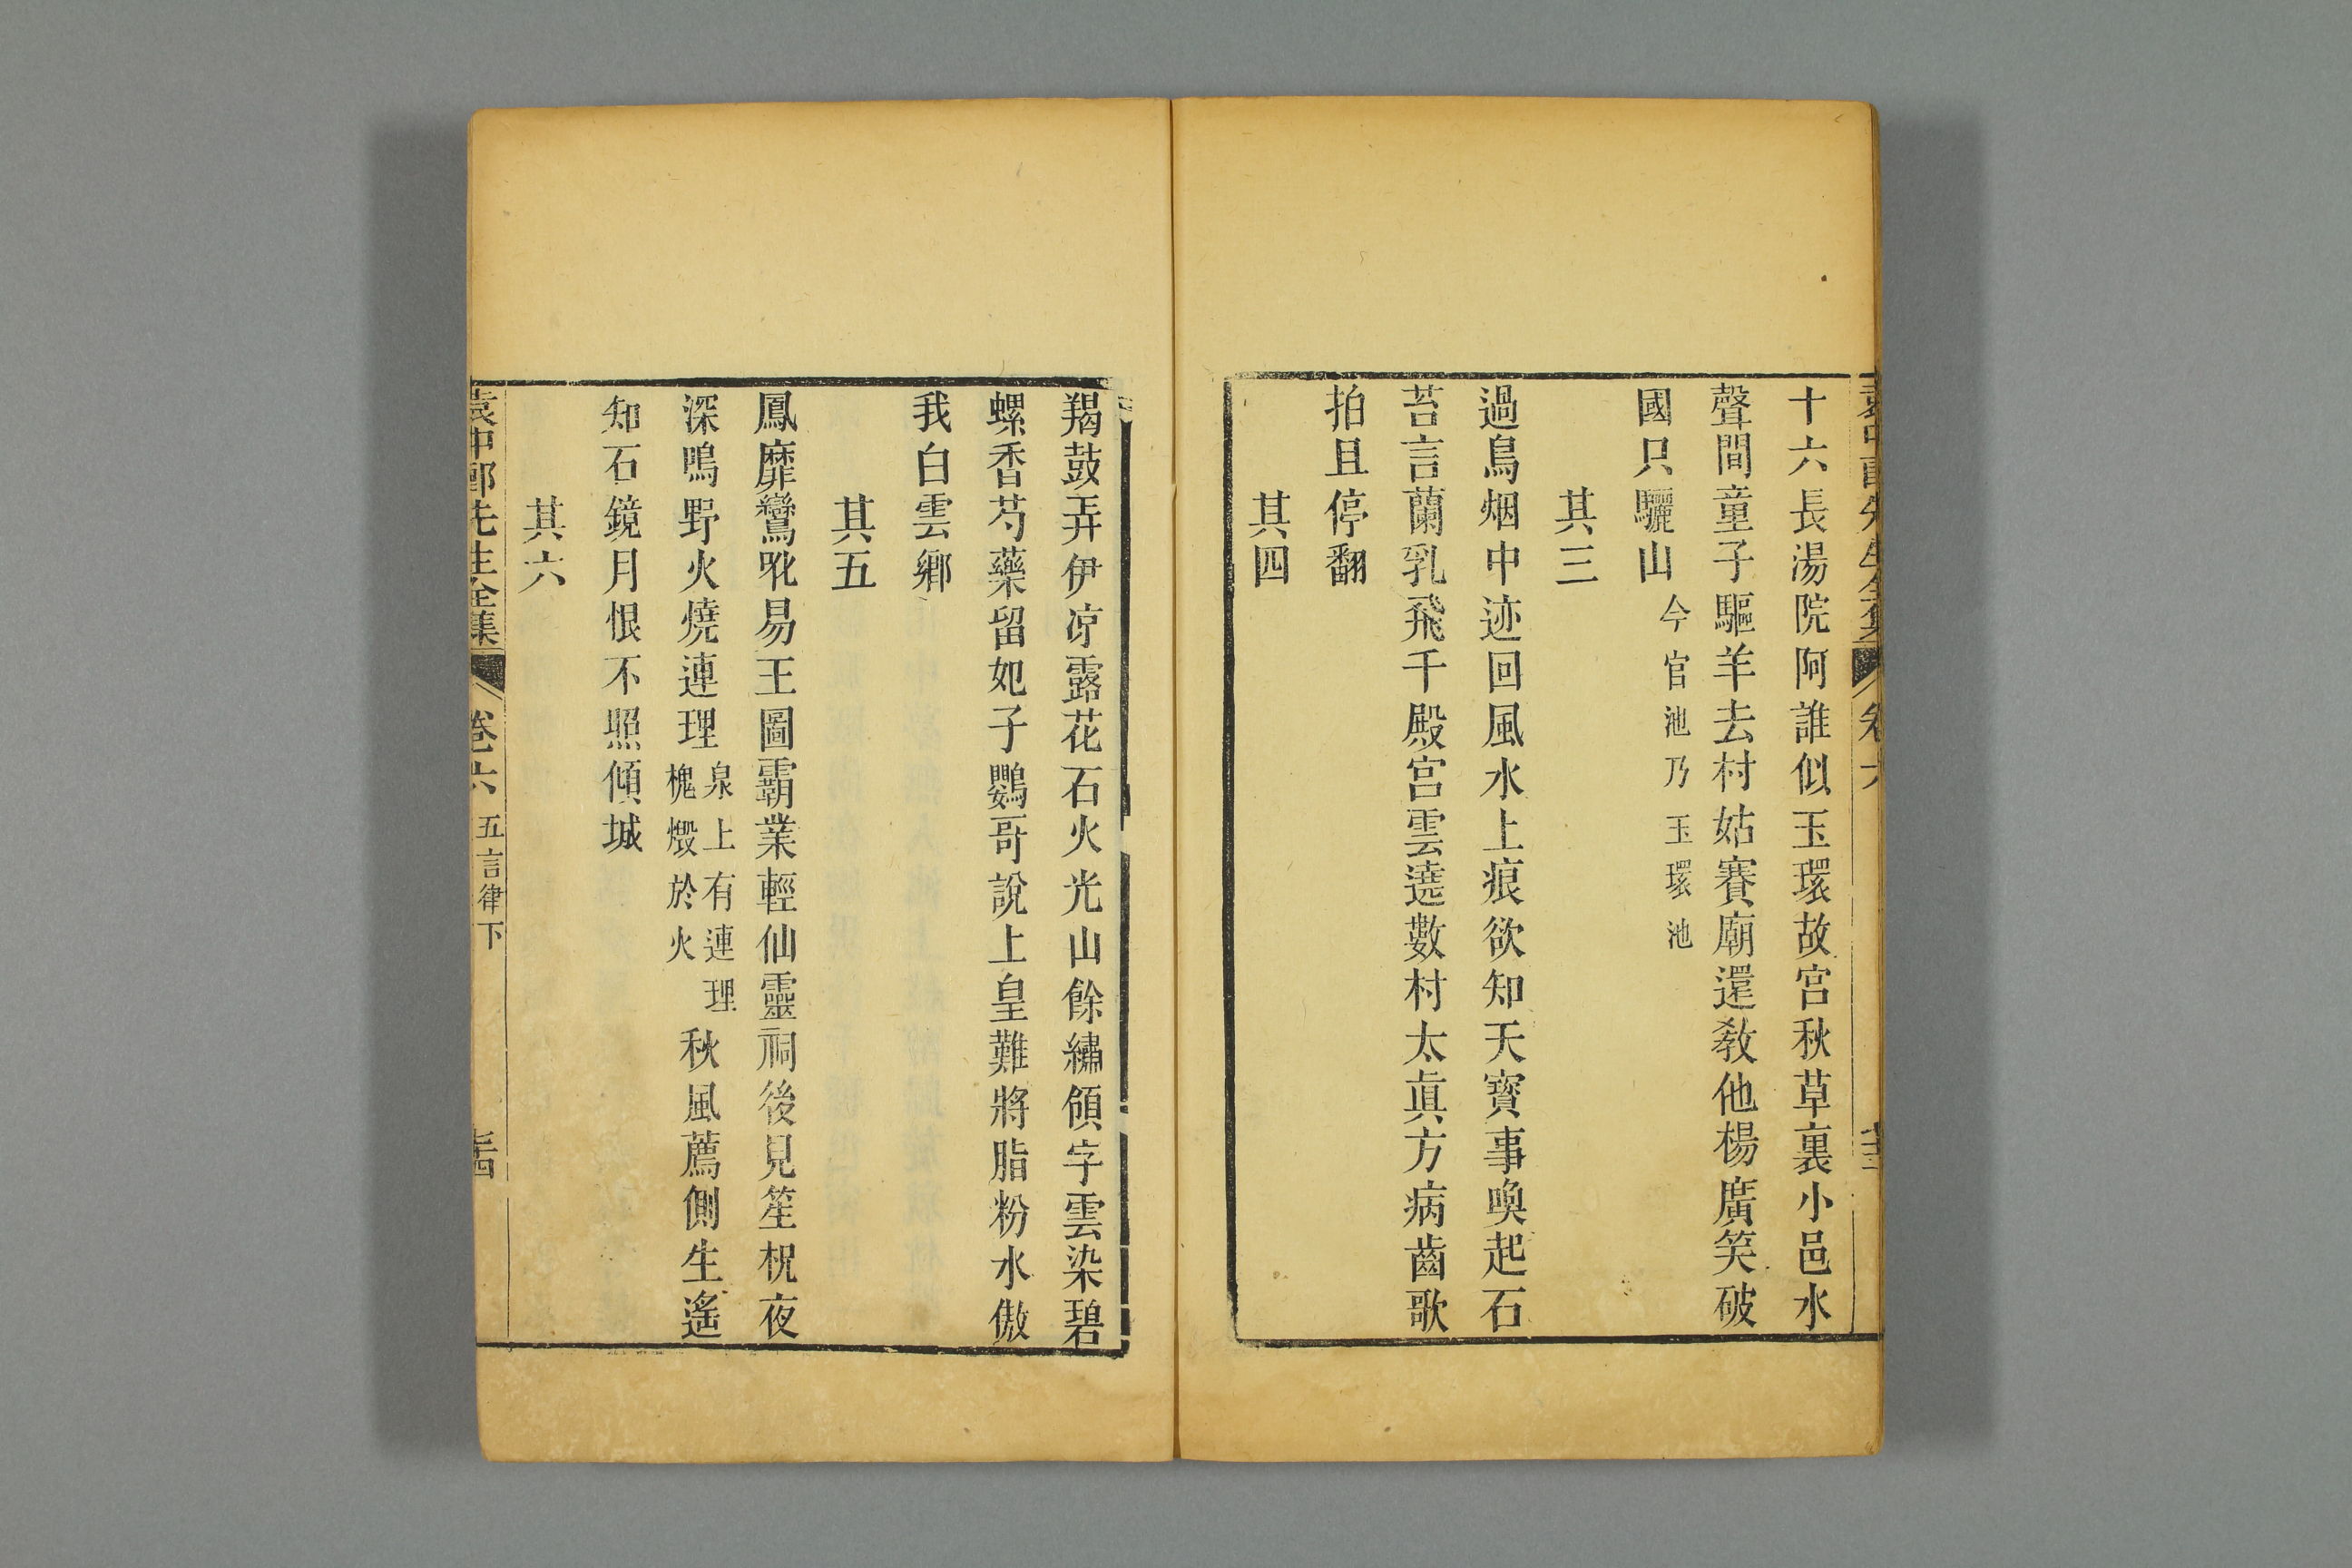 十六長湯院阿誰似玉環故宮秋草裏小邑水
聲間童子驅羊去村姑賽廟還教他楊廣笑破
國只驪山今官池乃玉環池
其三
過鳥烟中迹回風水上痕欲知天寶事喚起石
苔言蘭乳飛千殿宮雲遶數村太眞方病齒歌
拍且停翻
其四
羯鼓弄伊凉露花石火光山餘繡領字雲染碧
螺香芍藥留妃子鸚哥說上皇難將脂粉水傲
我白雲鄉
其五
鳳靡鸞吪易王圖霸業輕仙靈祠後見笙柷夜
深鳴野火燒連理泉上有連理槐燬於火秋風薦側生遙
知石鏡月恨不照傾城
其六
袁中郎先生全集 卷六 五言律下